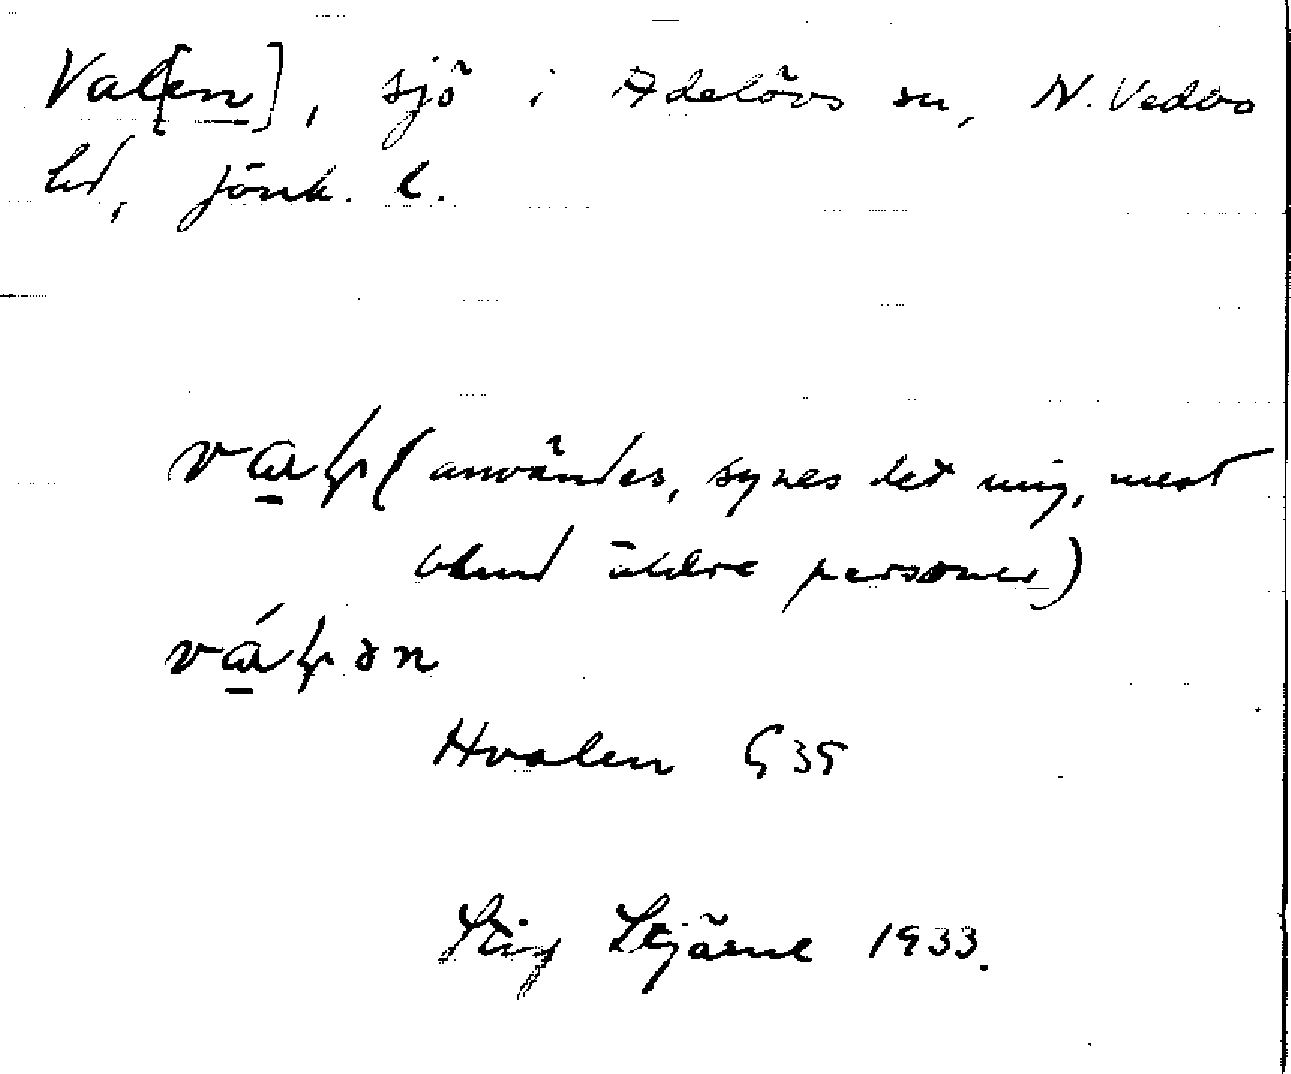 Val[en], sjö i Adelövs sn, N. Vedbo
hd, Jönk. l.
va̱ꞎ (användes, synes det mig, mest
bland äldre personer)
vá̱ꞎən
Hvalen G 35
Stig Stjärne 1933.